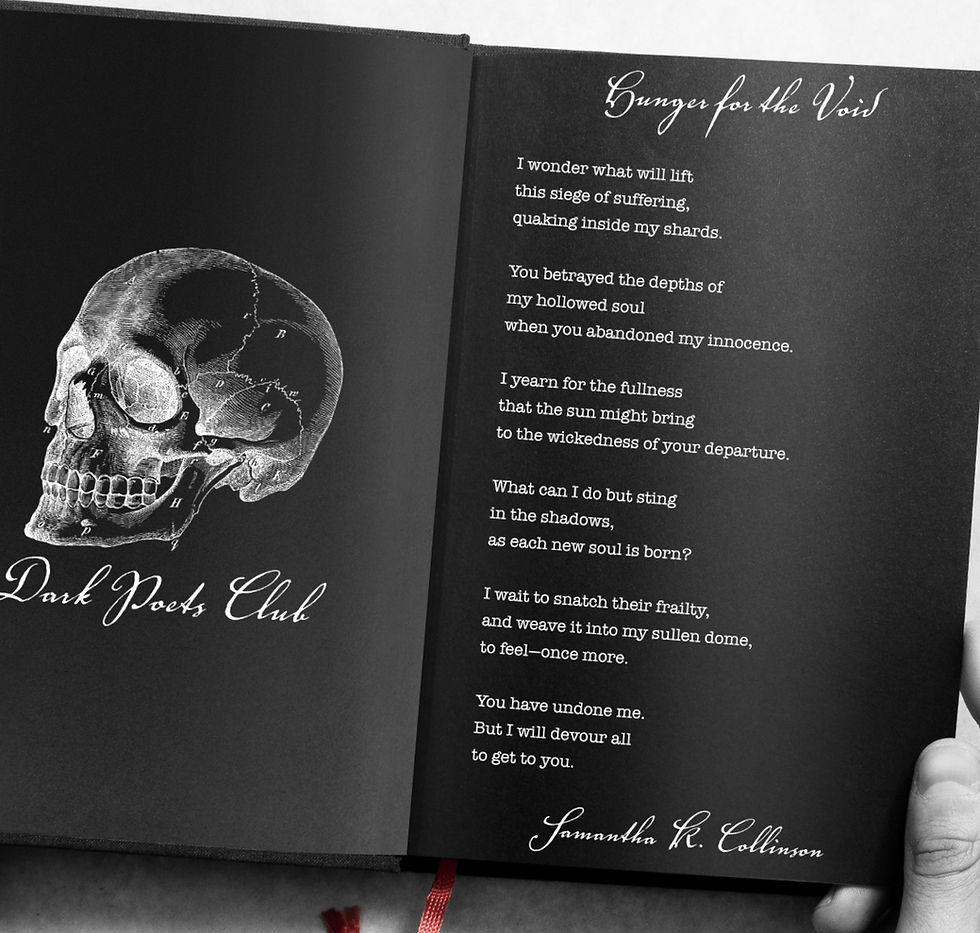 Dark Poets Club
Hunger for the Void
I wonder what will lift
this siege of suffering,
quaking inside my shards.
You betrayed the depths of
my hollowed soul
when you abandoned my innocence.
I yearn for the fullness
that the sun might bring
to the wickedness of your departure.
What can I do but sting
in the shadows,
as each new soul is born?
I wait to snatch their frailty,
and weave it into my sullen dome,
to feel—once more.
You have undone me.
But I will devour all
to get to you.
Samantha K. Collinson